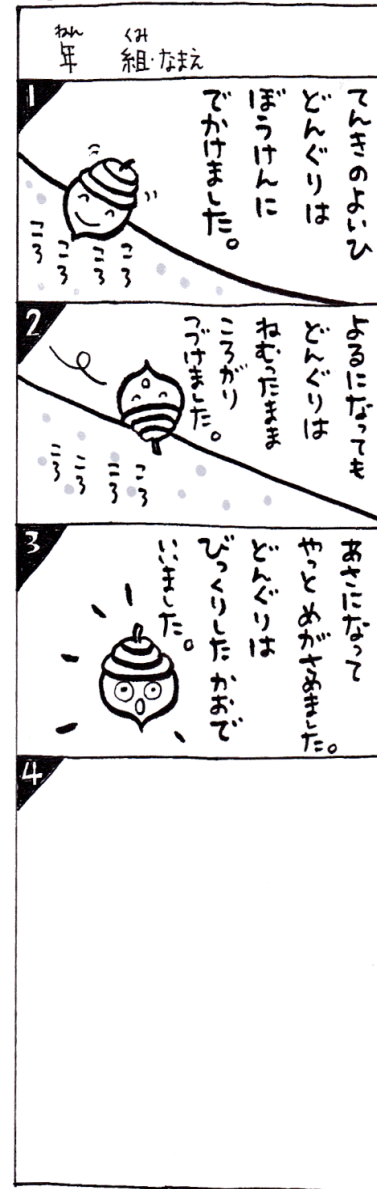 ねん くみ
年 組・なまえ
1
てんきのよいひ
どんぐりは
ぼうけんに
でかけました。
ころ
ころ
ころ
ころ
2
よるになっても
どんぐりは
ねむったまま
ころがり
つづけました。
ころ
ころ
ころ
ころ
3
あさになって
やっとめがさめました。
どんぐりは
びっくりしたかおで
いいました。
4